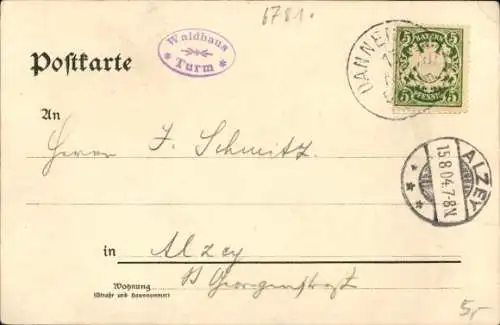 6781.
Waldhaus
Turm
Postkarte
DANNEN
5 BAYERN 5
5 PFENNIG 5
An
Herrn J. Schmitz.
ALZEY
15.8.04.7-8N
in Alzey
Wohnung
(Straße und Hausnummer)
Georgenstraße
5,-